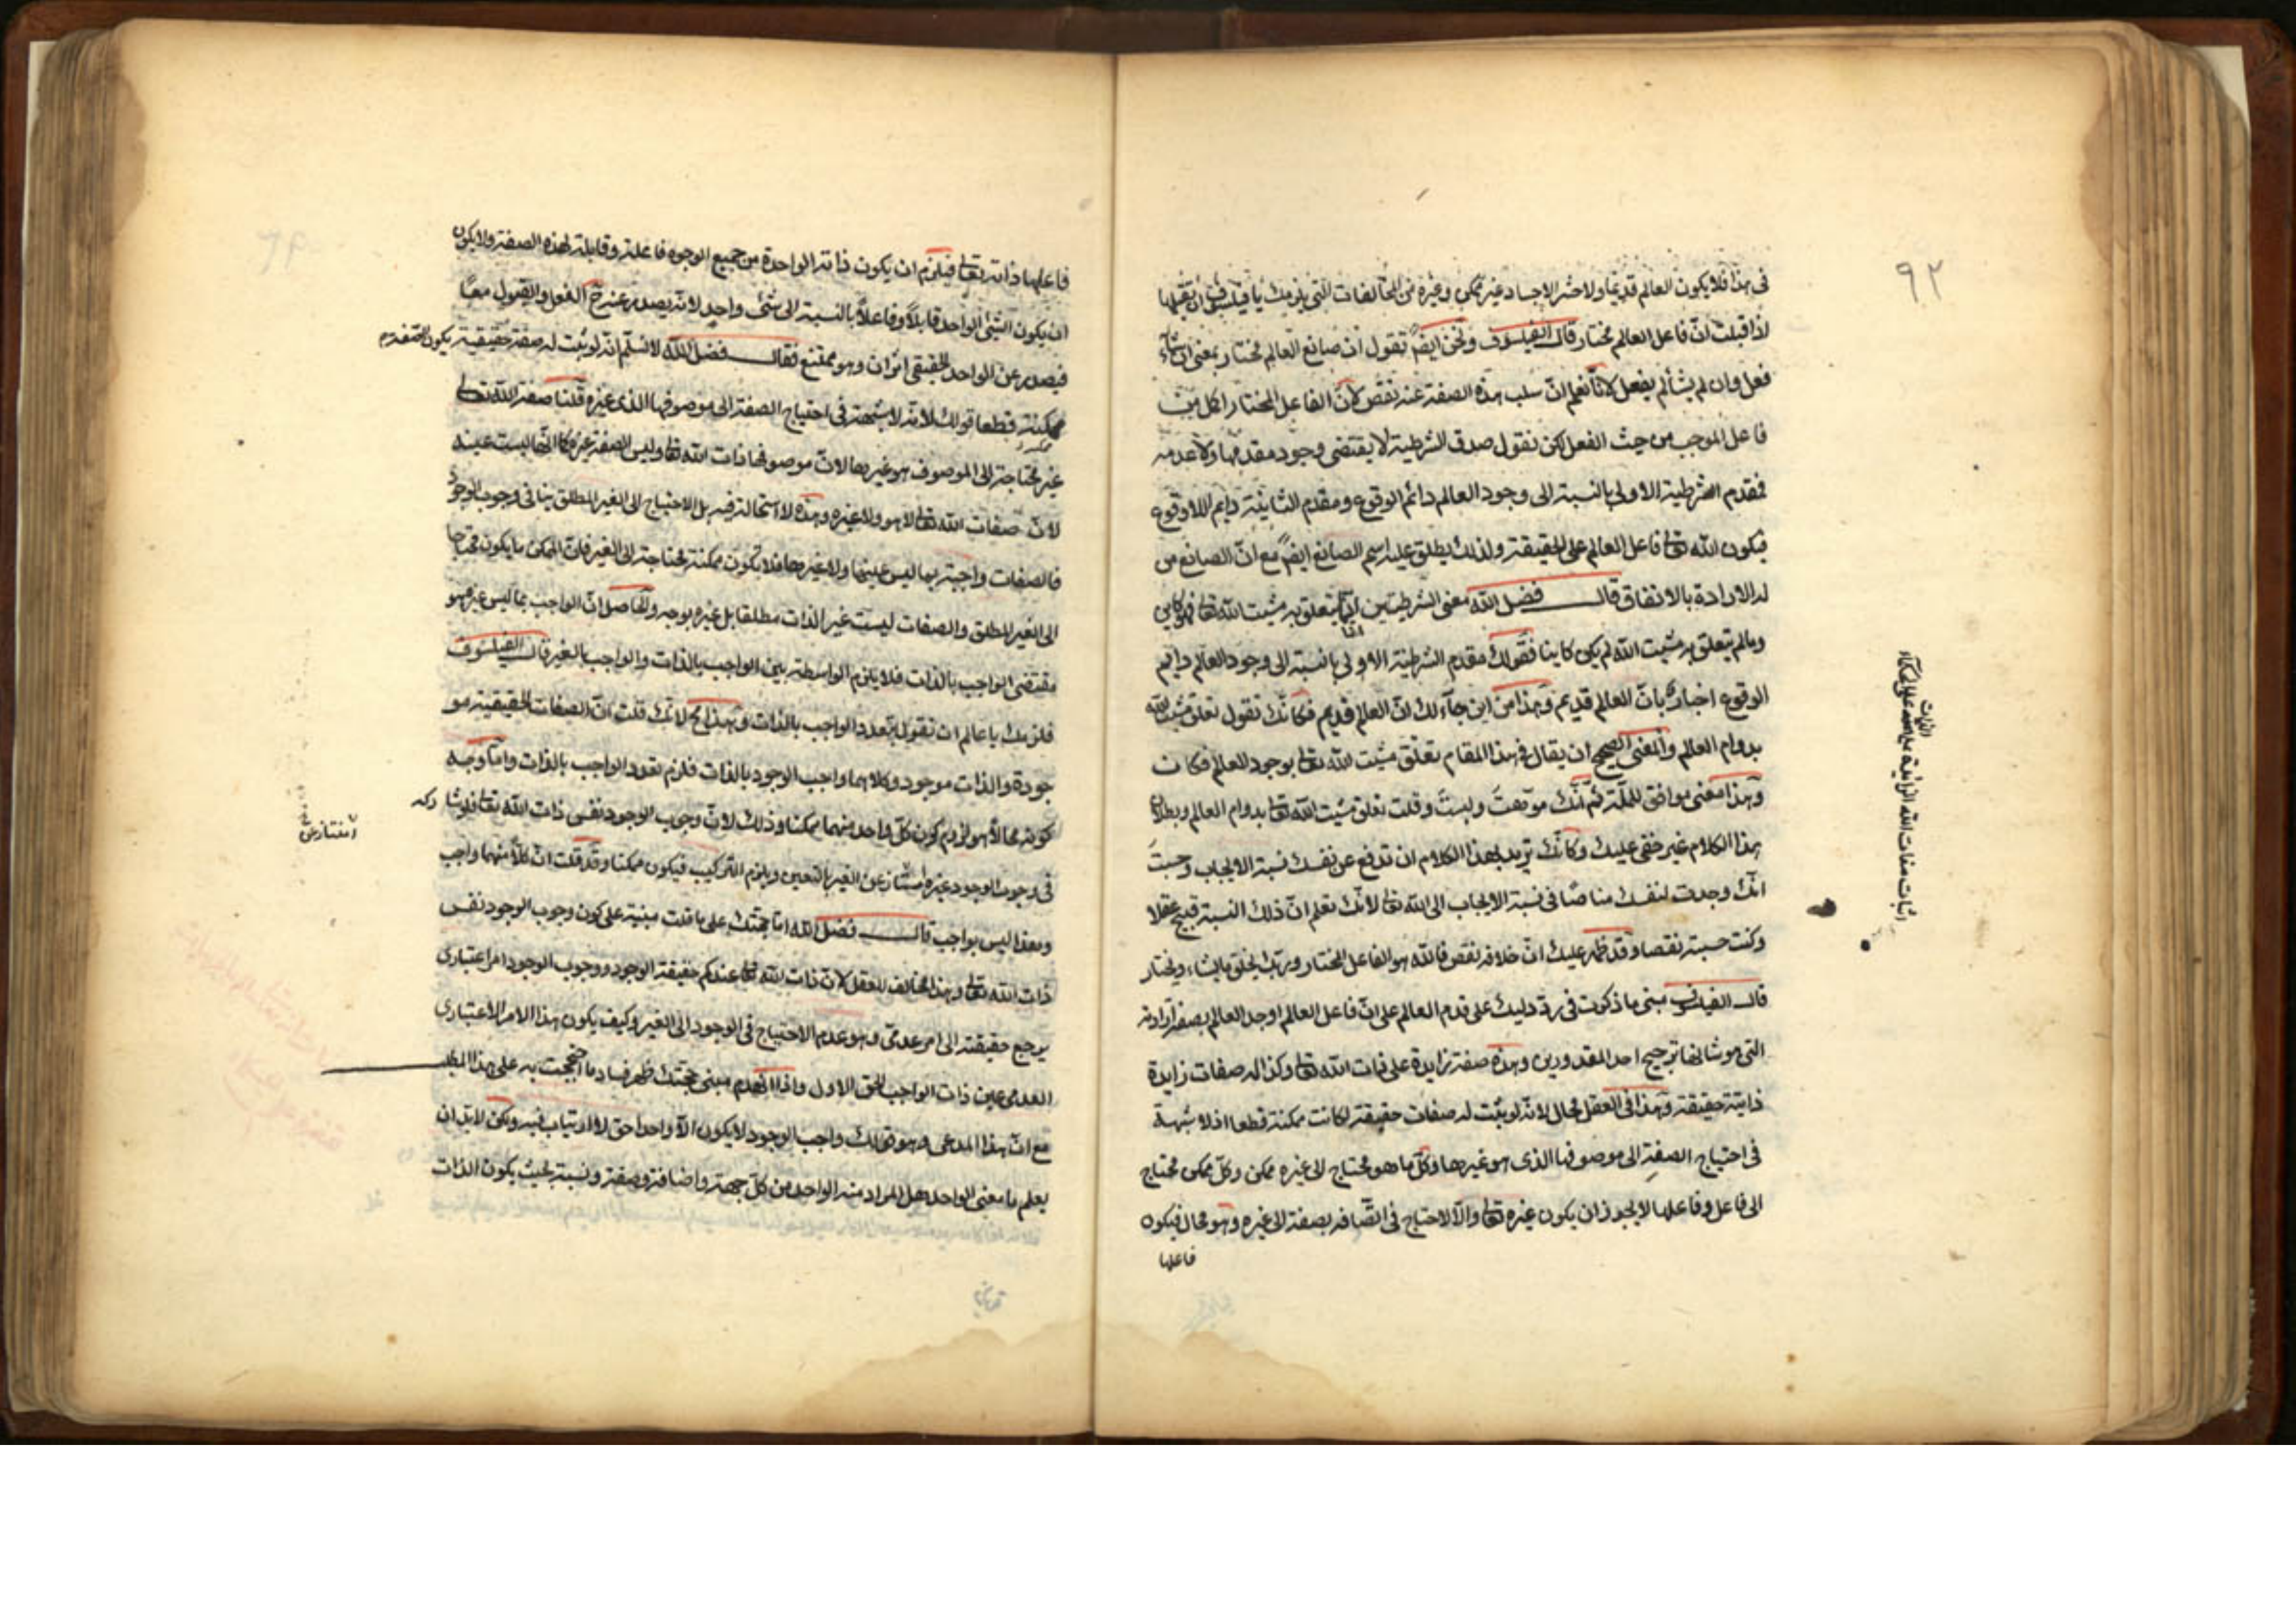 ٩٢
فى هذا فلا يكون العالم قديما ولا حشر الاجساد غير ممكن وغيره من المخالفات التى يلزمك يا فيلسوف ان تقبلها
اذا قبلت انّ فاعل العالم مختار قال الفيلسوف ونحن ايضًا نقول ان صانع العالم مختار بمعنى ان شآء
فعل وان لم يشأ لم يفعل لانّا نعلم انّ سلب هذه الصفة عنه نقص لانّ الفاعل المختار اكمل من
فاعل الموجب من حيث الفعل لكن نقول صدق الشرطية لا يقتضى وجود مقدمها ولا عدمه
فمقدم الشرطية الاولى بالنسبة الى وجود العالم دائم الوقوع ومقدم الثانية دايم اللاوقوع
فيكون الله تعا فاعل العالم على الحقيقة ولذلك يطلق عليه اسم الصانع ايضًا مع انّ الصانع من
له الارادة بالاتفاق قال فضل الله معنى الشرطيتين انّ ما يتعلق به مشيت الله تعا فهو كاين
وما لم يتعلق به مشيت الله لم يكن كاينا فقولك مقدم الشرطية الاولى بالنسبة الى وجود العالم دايم
الوقوع اخبار بانّ العالم قديم وهذا من اين جآء لك انّ العالم قديم فكانّك تقول تعلق مشيت الله
بدوام العالم والمعنى الصحيح ان يقال فى هذا المقام تعلق مشيت الله تعا بوجود العالم فكان
وهذا معنى موافق للملّة ثم انّك موّهتَ ولبستَ وقلت تعلق مشيت الله تعا بدوام العالم وبطلان
هذا الكلام غير خفى عليك وكانّك تريد بهذا الكلام ان تدفع عن نفسك نسبة الايجاب وحسبتَ
انّك وجدت لنفسك مناصًا فى نسبة الايجاب الى الله تعا لانّك تعلم انّ ذلك النسبة قبيح عقلا
وكنت حسبته نقصا وقد ظهر عليك انّ خلافه نقص فالله هو الفاعل المختار وربّك يخلق ما يشاء ويختار
قال الفيلسوف مبنى ما ذكرت فى ردّ دليلك على قدم العالم على انّ فاعل العالم اوجد العالم بصفة ارادته
التى هو شانها ترجيح احد المقدورين وهذه صفة زايدة على ذات الله تعا وكذا له صفات زايدة
ذاتية حقيقة وهذا فى العقل محال لانّه لو ثبت له صفات حقيقة لكانت ممكنة قطعا اذ لا شبهة
فى احتياج الصفة الى موصوفها الذى هو غيرها وكلّ ما هو محتاج الى غيره ممكن وكلّ ممكن محتاج
الى فاعل وفاعلها لا يجوز ان يكون غيره تعا والّا لاحتاج فى اتّصافه بصفة الى غيره وهو محال فيكون
فاعلها
اثبات صفات الله الزايدة على
فاعلها ذاته تعا فيلزم ان يكون ذاته الواحدة من جميع الوجوه فاعلة وقابلة لهذه الصفة ولا يكون
ان يكون الشئ الواحد قابلًا وفاعلًا بالنسبة الى شئ واحد لانّه يصدر عنه ح الفعل والقبول معًا
فيصدر عن الواحد الحقيقى اثران وهو ممتنع فقال فضل الله لا نسلّم انّه لو ثبت له صفة حقيقية يكون الصفة
ممكنة قطعا قولك لانّه لا شبهة فى احتياج الصفة الى موصوفها الذى غيره قلنا صفة الله تعا
غير محتاجة الى الموصوف هو غيرها لانّ موصوفها ذات الله تعا وليس الصفة غيره كما انّها ليست عينه
لانّ صفات الله تعا لا هو ولا غيره وهذه لا استحالة فيه بل الاحتياج الى الغير المطلق ينافى وجوب الوجود
فالصفات واجبة بما ليس عينها ولا غيرها فلا يكون ممكنة محتاجة الى الغير فانّ الممكن ما يكون محتاجا
الى الغير المطلق والصفات ليست غير الذات مطلقا بل غيره بوجه والحاصل انّ الواجب بما ليس غيره هو
مقتضى الواجب بالذات فلا يلزم الواسطة بين الواجب بالذات والواجب بالغير قال الفيلسوف
فلزمك يا عالم ان تقول بتعدد الواجب بالذات وهذا مح لانّك قلت انّ الصفات الحقيقية مو
جودة والذات موجود وكلاهما واجب الوجود بالذات فلزم تعدد الواجب بالذات وامّا وجه
كونه محالًا هو لزوم كون كلّ واحد منهما ممكنا وذلك لانّ وجوب الوجود نفس ذات الله تعا فلو شاركه
فى وجوب الوجود غيره امتاز عن الغير بالتعين ويلزم التركيب فيكون ممكنا وقد قلت انّ كلًّا منهما واجب
وهذا ليس بواجب قال فضل الله امّا حجّتك على ما قلت مبنية على كون وجوب الوجود نفس
ذات الله تعا وهذا مخالف للعقل لانّ ذات الله تعا عندكم حقيقة الوجود ووجوب الوجود امر اعتبارى
يرجع حقيقته الى امر عدمىّ وهو عدم الاحتياج فى الوجود الى الغير وكيف يكون هذا الامر الاعتبارى
العدمى عين ذات الواجب الحق الاول واذا انهدم مبنى حجّتك ظهر فساد ما احتججت به على هذا المط
مع انّ هذا المدعى وهو قولك واجب الوجود لا يكون الّا واحدا حق لا ارتياب فيه ولكن لا بدّ ان
يعلم ما معنى الواحد هل المراد منه الواحد من كلّ جهة واضافة وصفة ونسبة بحيث يكون الذات